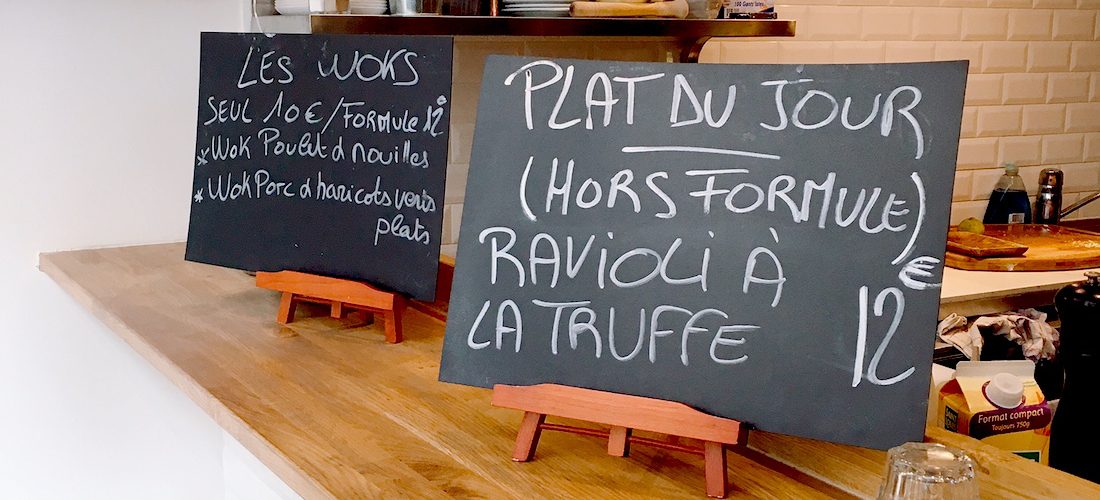 LES WOKS
SEUL 10€/FORMULE 12
* Wok Poulet & nouilles
* Wok Porc & haricots verts
plats
PLAT DU JOUR
(HORS FORMULE)
RAVIOLI À
LA TRUFFE
12€
100 Gants latex
Format compact
Toujours 750g